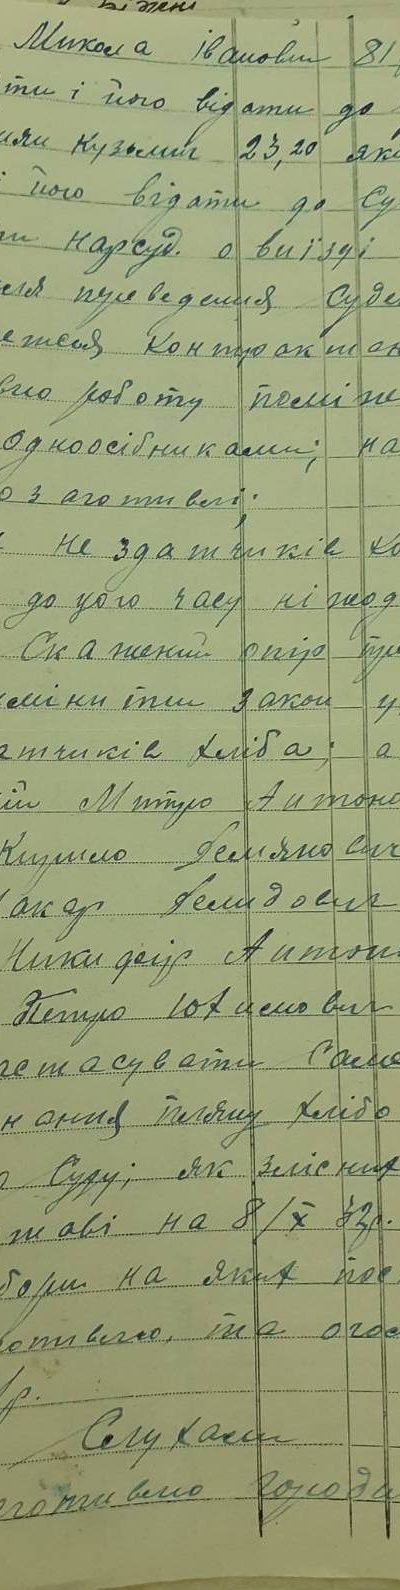 Микола Іванович 81
ти і його відати до
Кузьмич 23,20 яки
його відати до Су
нарсуд. о виїзді
переведення суде
контрактан
роботу поміж
одноосібниками; на
заготивлі.
не здатчиків хл
до цього часу ні жод
Скажений опір пр
змінити закон у
атчиків хліба; а
Митро Антоно
Кирило Демянович
акар Демидович
Никифір Антон
Петро Юхимович
стасувати само
нання пляну хлібо
Суду; як злісних
на 8/X 32р.
бори на яких пос
отивлю, та огол
р.
Слухали
готивлю городи